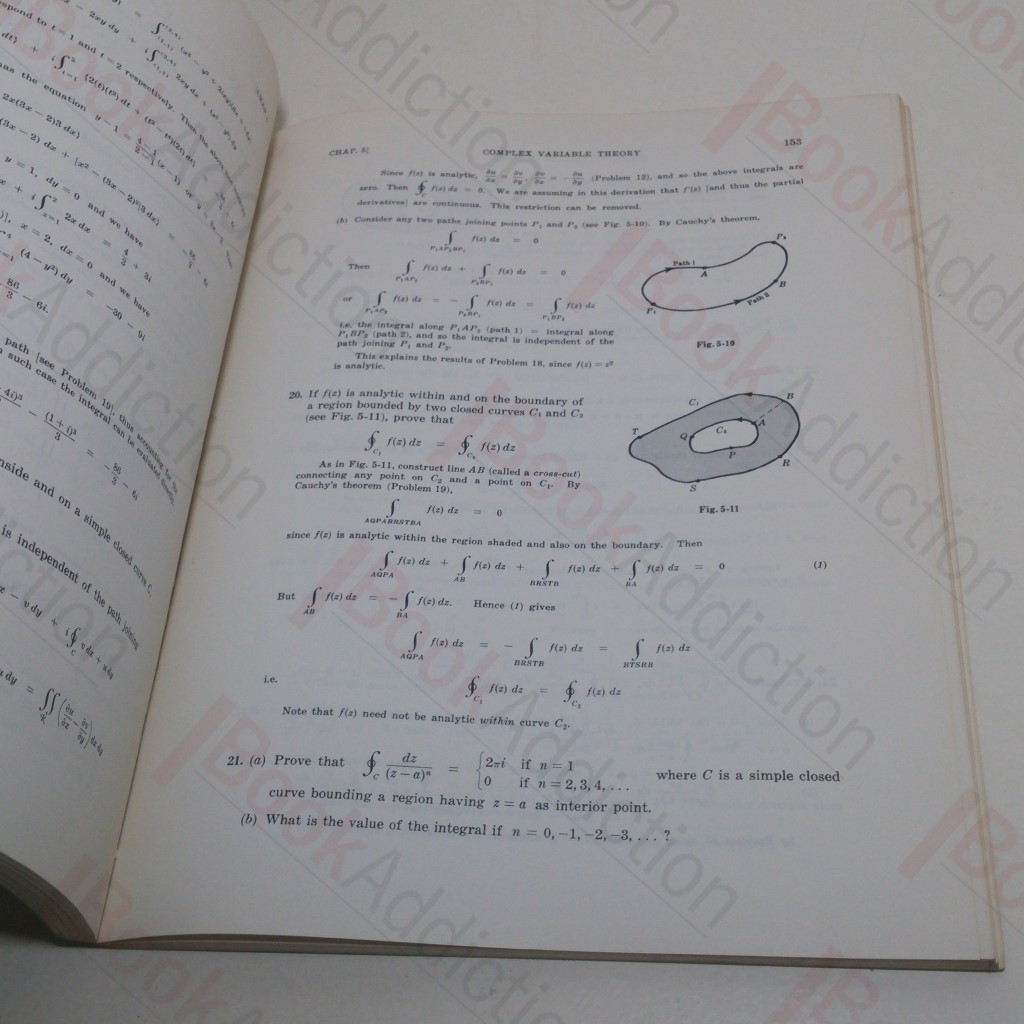 CHAP. 5]
COMPLEX VARIABLE THEORY
153
Since f(z) is analytic, ∂u/∂x = ∂v/∂y, ∂v/∂x = −∂u/∂y (Problem 12), and so the above integrals are
zero. Then ∮_C f(z) dz = 0. We are assuming in this derivation that f′(z) [and thus the partial
derivatives] are continuous. This restriction can be removed.
(b) Consider any two paths joining points P₁ and P₂ (see Fig. 5-10). By Cauchy's theorem,
∫_{P₁AP₂BP₁} f(z) dz = 0
Then ∫_{P₁AP₂} f(z) dz + ∫_{P₂BP₁} f(z) dz = 0
or ∫_{P₁AP₂} f(z) dz = − ∫_{P₂BP₁} f(z) dz = ∫_{P₁BP₂} f(z) dz
i.e. the integral along P₁AP₂ (path 1) = integral along
P₁BP₂ (path 2), and so the integral is independent of the
path joining P₁ and P₂.
This explains the results of Problem 18, since f(z) = z²
is analytic.
Path 1
A
P₂
B
Path 2
P₁
Fig. 5-10
20. If f(z) is analytic within and on the boundary of
a region bounded by two closed curves C₁ and C₂
(see Fig. 5-11), prove that
∮_{C₁} f(z) dz = ∮_{C₂} f(z) dz
As in Fig. 5-11, construct line AB (called a cross-cut)
connecting any point on C₂ and a point on C₁. By
Cauchy's theorem (Problem 19),
∫_{AQPABRSTBA} f(z) dz = 0
C₁
B
T
Q
C₂
A
P
R
S
Fig. 5-11
since f(z) is analytic within the region shaded and also on the boundary. Then
∫_{AQPA} f(z) dz + ∫_{AB} f(z) dz + ∫_{BRSTB} f(z) dz + ∫_{BA} f(z) dz = 0 (1)
But ∫_{AB} f(z) dz = − ∫_{BA} f(z) dz. Hence (1) gives
∫_{AQPA} f(z) dz = − ∫_{BRSTB} f(z) dz = ∫_{BTSRB} f(z) dz
i.e. ∮_{C₁} f(z) dz = ∮_{C₂} f(z) dz
Note that f(z) need not be analytic within curve C₂.
21. (a) Prove that ∮_C dz/(z − a)ⁿ = {2πi if n = 1
0 if n = 2, 3, 4, . . . where C is a simple closed
curve bounding a region having z = a as interior point.
(b) What is the value of the integral if n = 0, −1, −2, −3, . . . ?
y = 1, dy = 0 and we have
x = 2, dx = 0 and we have
path [see Problem 19], thus accounting for
such case the integral can be evaluated
inside and on a simple closed curve C,
is independent of the path joining
BookAddiction